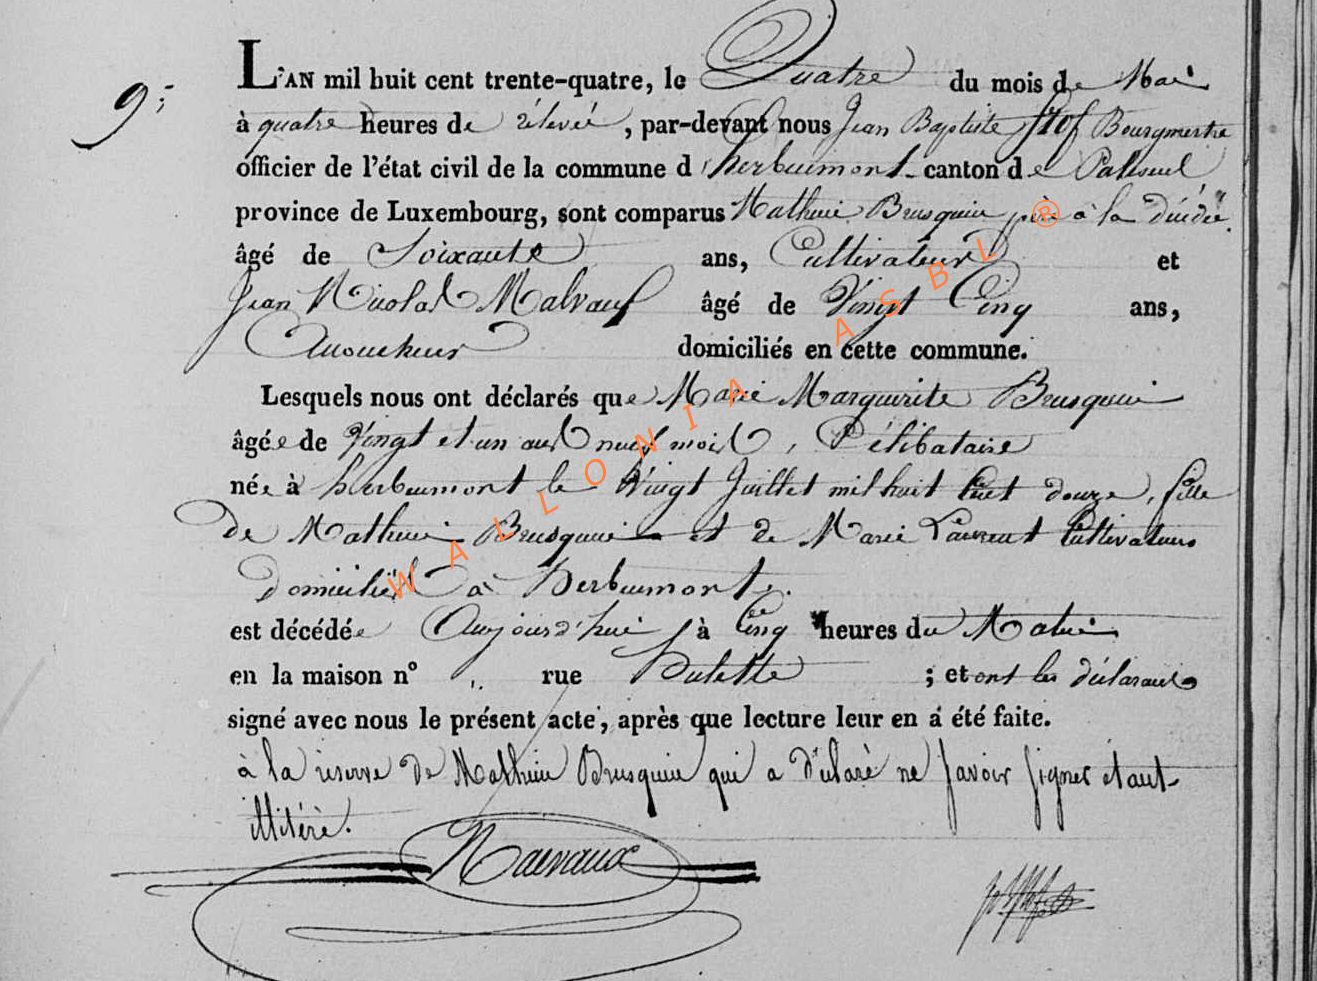 9;
L'AN mil huit cent trente-quatre, le Quatre du mois de Mai
à quatre heures de rélevée, par-devant nous Jean Baptiste Bourgmestre
officier de l'état civil de la commune d'herbeumont canton de Paliseul
province de Luxembourg, sont comparus Mathieu Brusquin père à la décédée
âgé de Soixante ans, Cultivateur et
Jean Nicolas Malvaux âgé de Vingt Cinq ans,
domiciliés en cette commune.
Lesquels nous ont déclarés que Marie Marguerite Brusquin
âgée de Vingt et un ans neuf mois, Célibataire
née à herbeumont le Vingt Juillet mil huit Cent douze, fille
de Mathieu Brusquin et de Marie Laurent Cultivateurs
domiciliés à herbeumont.
est décédée Aujourd'hui à Cinq heures du Matin
en la maison n° ,, rue ; et ont les déclarants
signé avec nous le présent acte, après que lecture leur en á été faite.
à la réserve de Mathieu Brusquin qui a déclaré ne savoir signer étant
illitéré.
Malvaux
WALLONIA ASBL ®